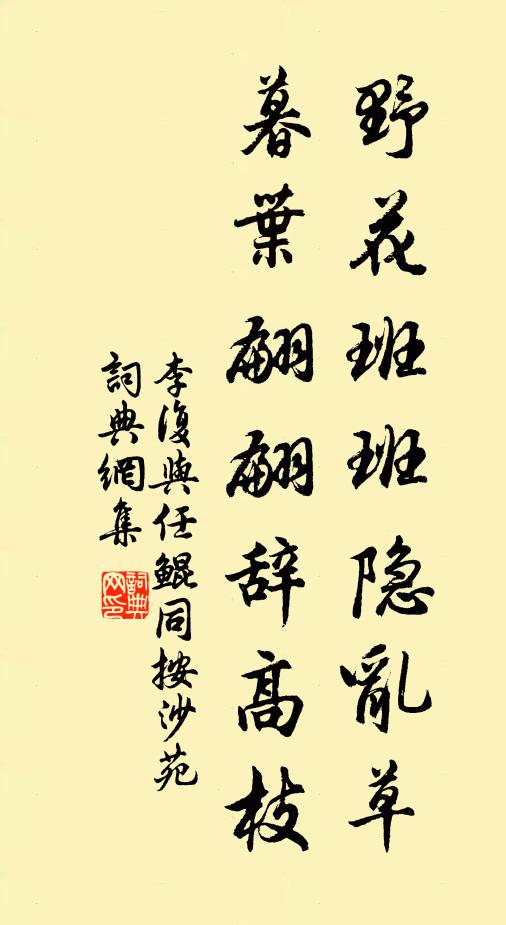 野花班班隐亂草
暮葉翩翩辞高枝
李復與任鲲同按沙苑
詞典網集
詞典网印